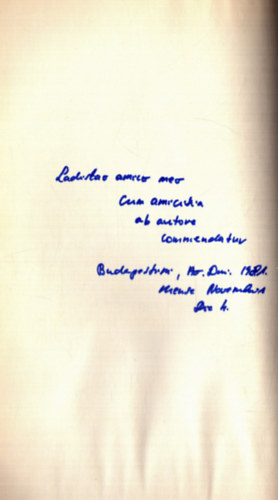 Ladislao amico meo
Cum amicitia
ab autore
commendatur
Budapestini, Ao. Dni. 1981.
Mense Novembris
Die 4.